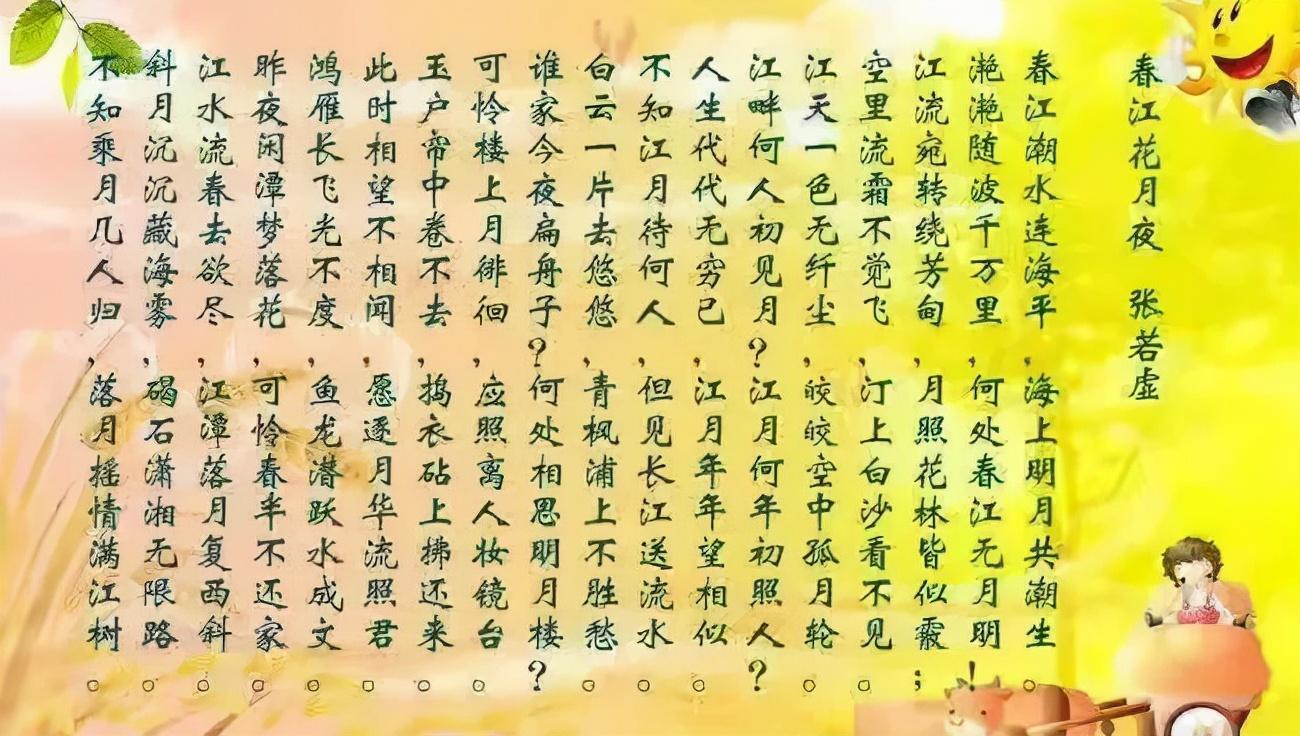 春江花月夜 张若虚
春江潮水连海平,海上明月共潮生。
滟滟随波千万里,何处春江无月明!
江流宛转绕芳甸,月照花林皆似霰;
空里流霜不觉飞,汀上白沙看不见。
江天一色无纤尘,皎皎空中孤月轮。
江畔何人初见月?江月何年初照人?
人生代代无穷已,江月年年望相似。
不知江月待何人,但见长江送流水。
白云一片去悠悠,青枫浦上不胜愁。
谁家今夜扁舟子?何处相思明月楼?
可怜楼上月徘徊,应照离人妆镜台。
玉户帘中卷不去,捣衣砧上拂还来。
此时相望不相闻,愿逐月华流照君。
鸿雁长飞光不度,鱼龙潜跃水成文。
昨夜闲潭梦落花,可怜春半不还家。
江水流春去欲尽,江潭落月复西斜。
斜月沉沉藏海雾,碣石潇湘无限路。
不知乘月几人归,落月摇情满江树。